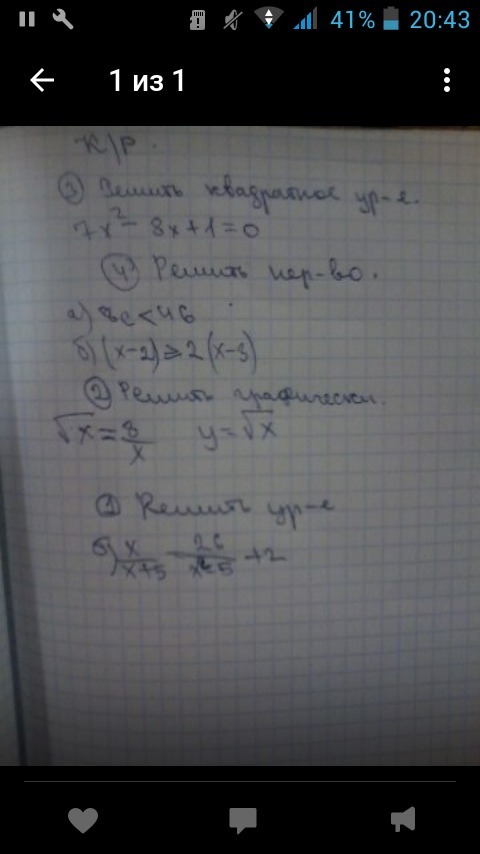 41% 20:43
1 из 1
К/Р.
③ Решить квадратное ур-е.
7x² - 8x + 1 = 0
④ Решить нер-во.
а) 8c < 46
б) (x-2) ⩾ 2(x-3)
② Решить графически.
√x = 8/x y = √x
① Решить ур-е
б) x/x+5 - 26/x²-5 + 2